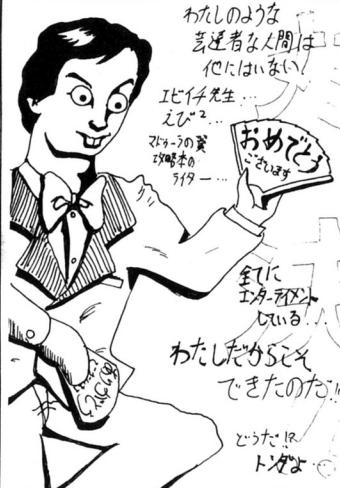 わたしのような
芸達者な人間は
他にはいない!
エビイチ先生…
えび²…
マドゥーラの翼
攻略本の
ライター…
おめでとう
ございます
全てに
エンターテイメント
している…
わたしだからこそ
できたのだ!!
どうだ!?
トンダよ…